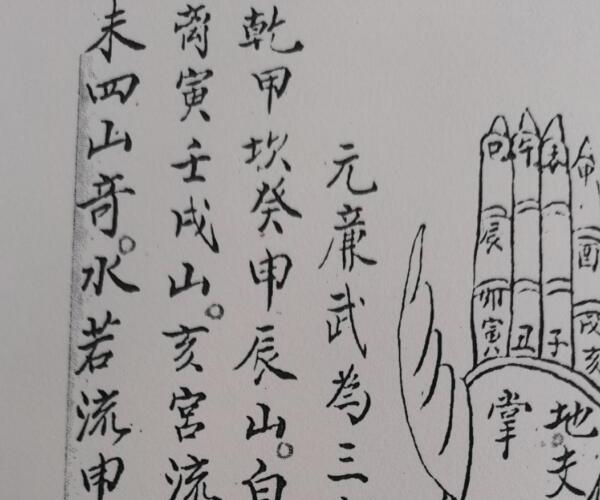 午未申
辰酉
卯戌
寅丑子亥
地夫
掌
元廉武為三
乾甲坎癸申辰山。白
离寅壬戌山。亥宮流
未四山奇。水若流申